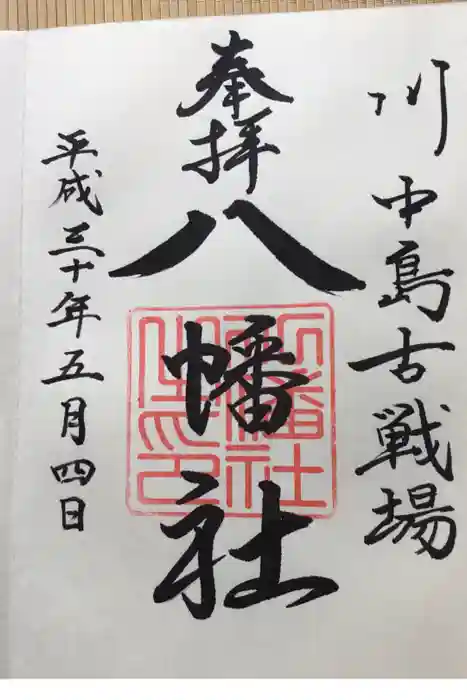 川中島古戦場
奉拝
八幡社
平成三十年五月四日
八幡社
之印